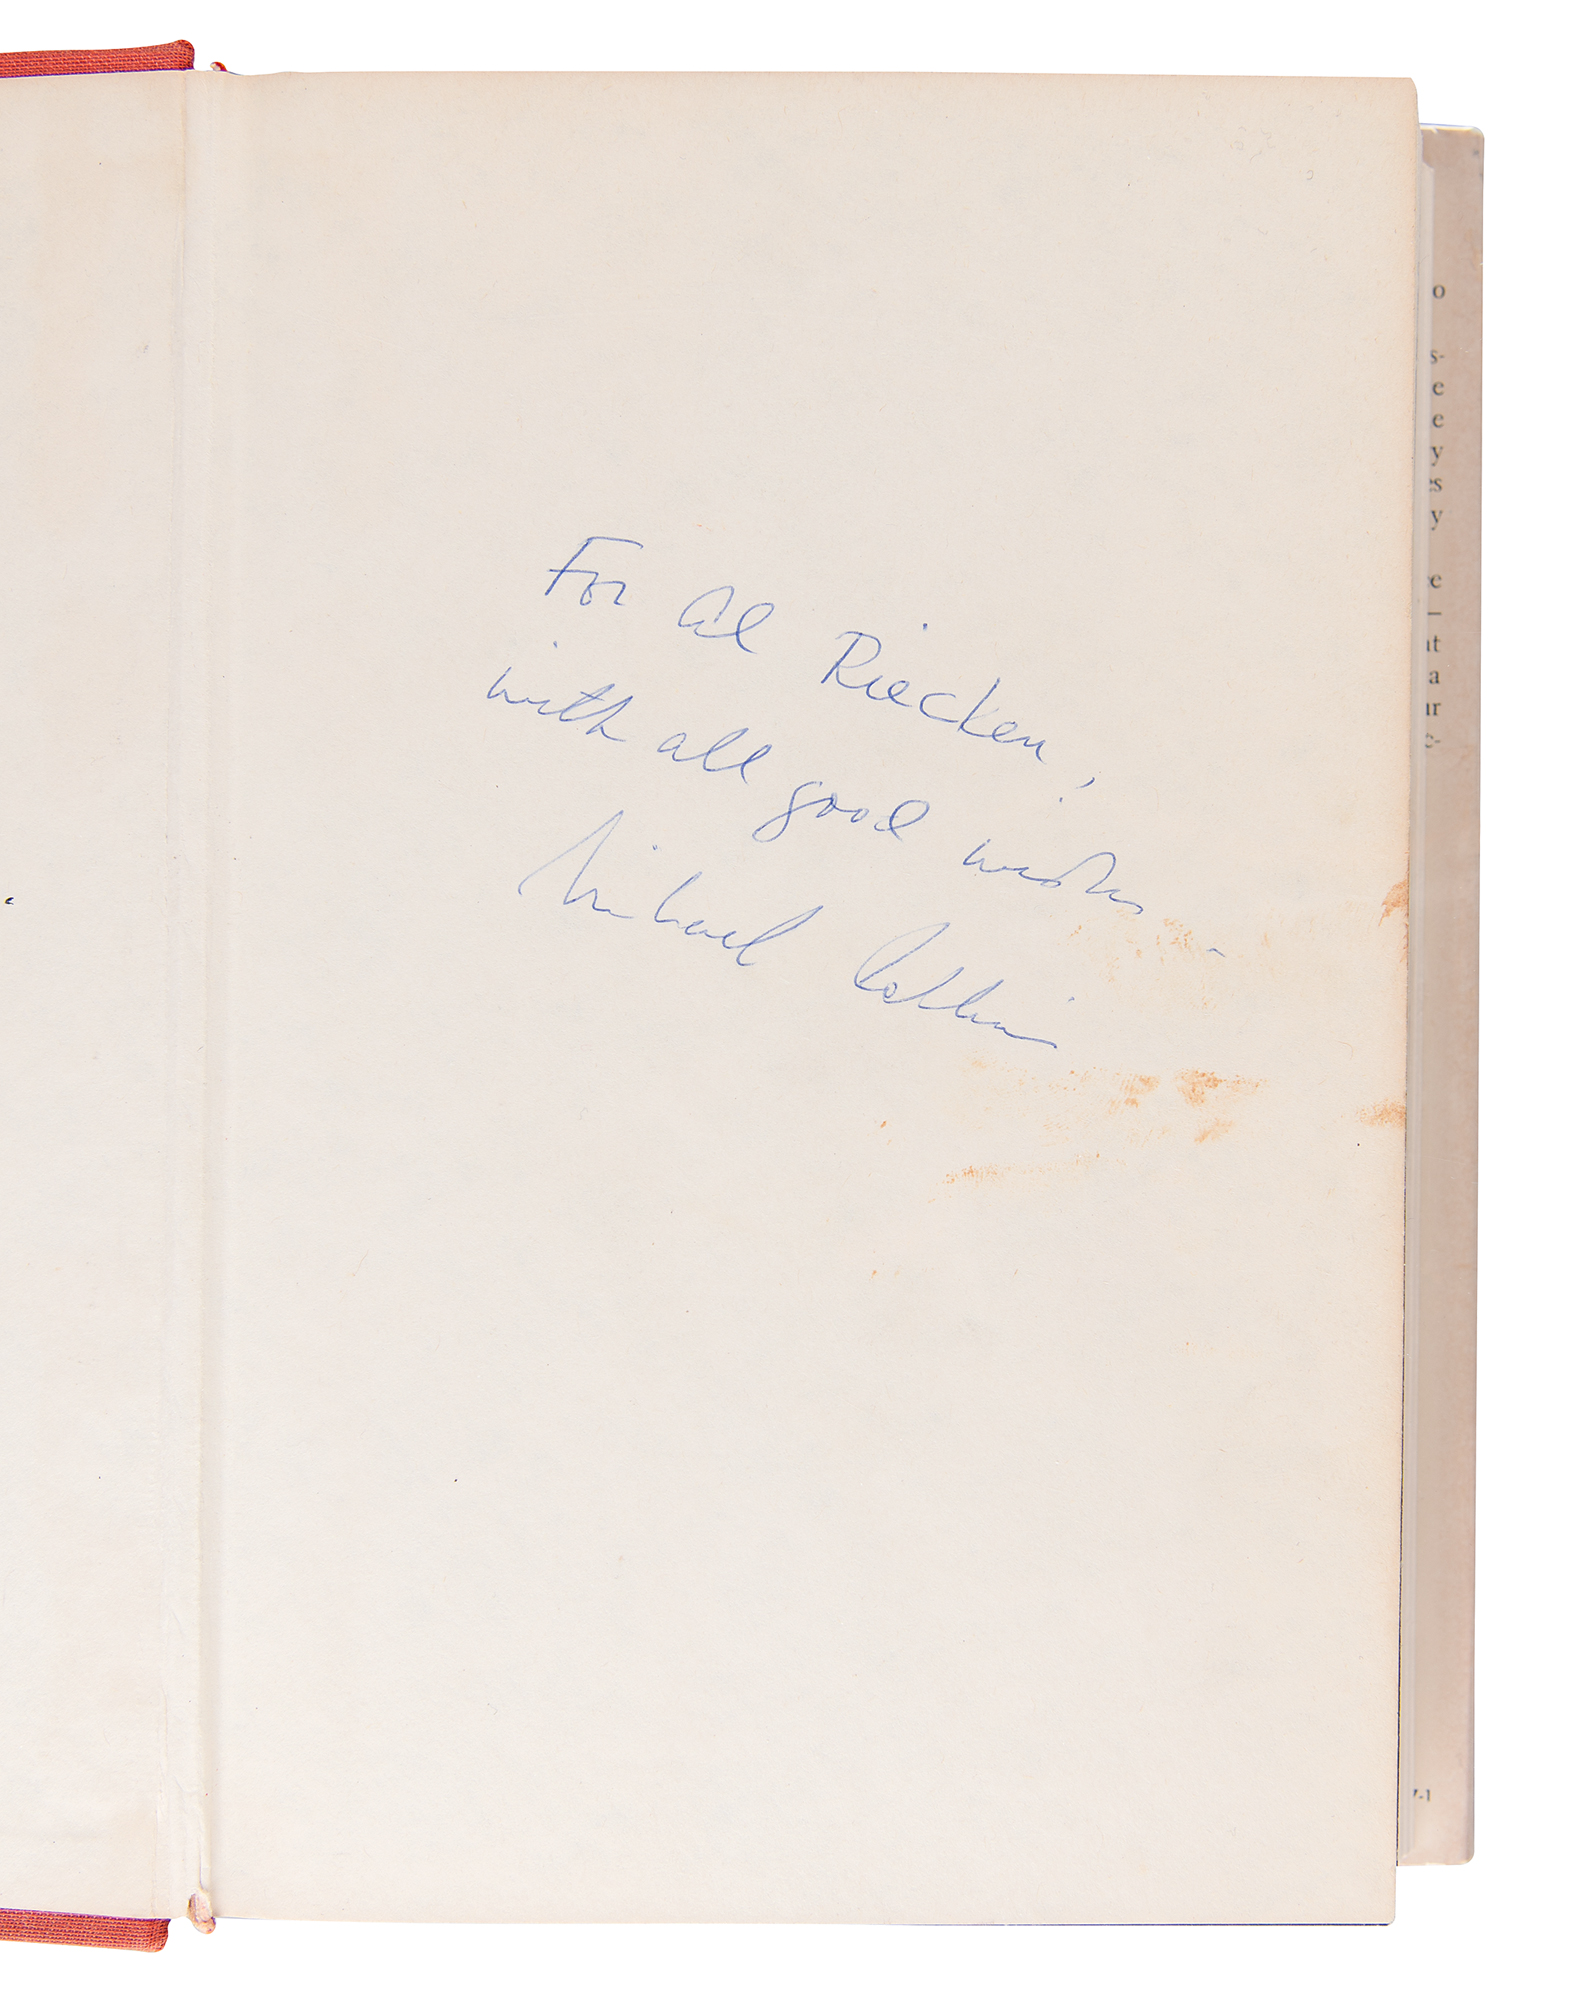 For Al Riecken,
with all good wishes -
Michael Collins
o
s-
e
e
y
es
y
e
—
at
a
ur
c-
7-1